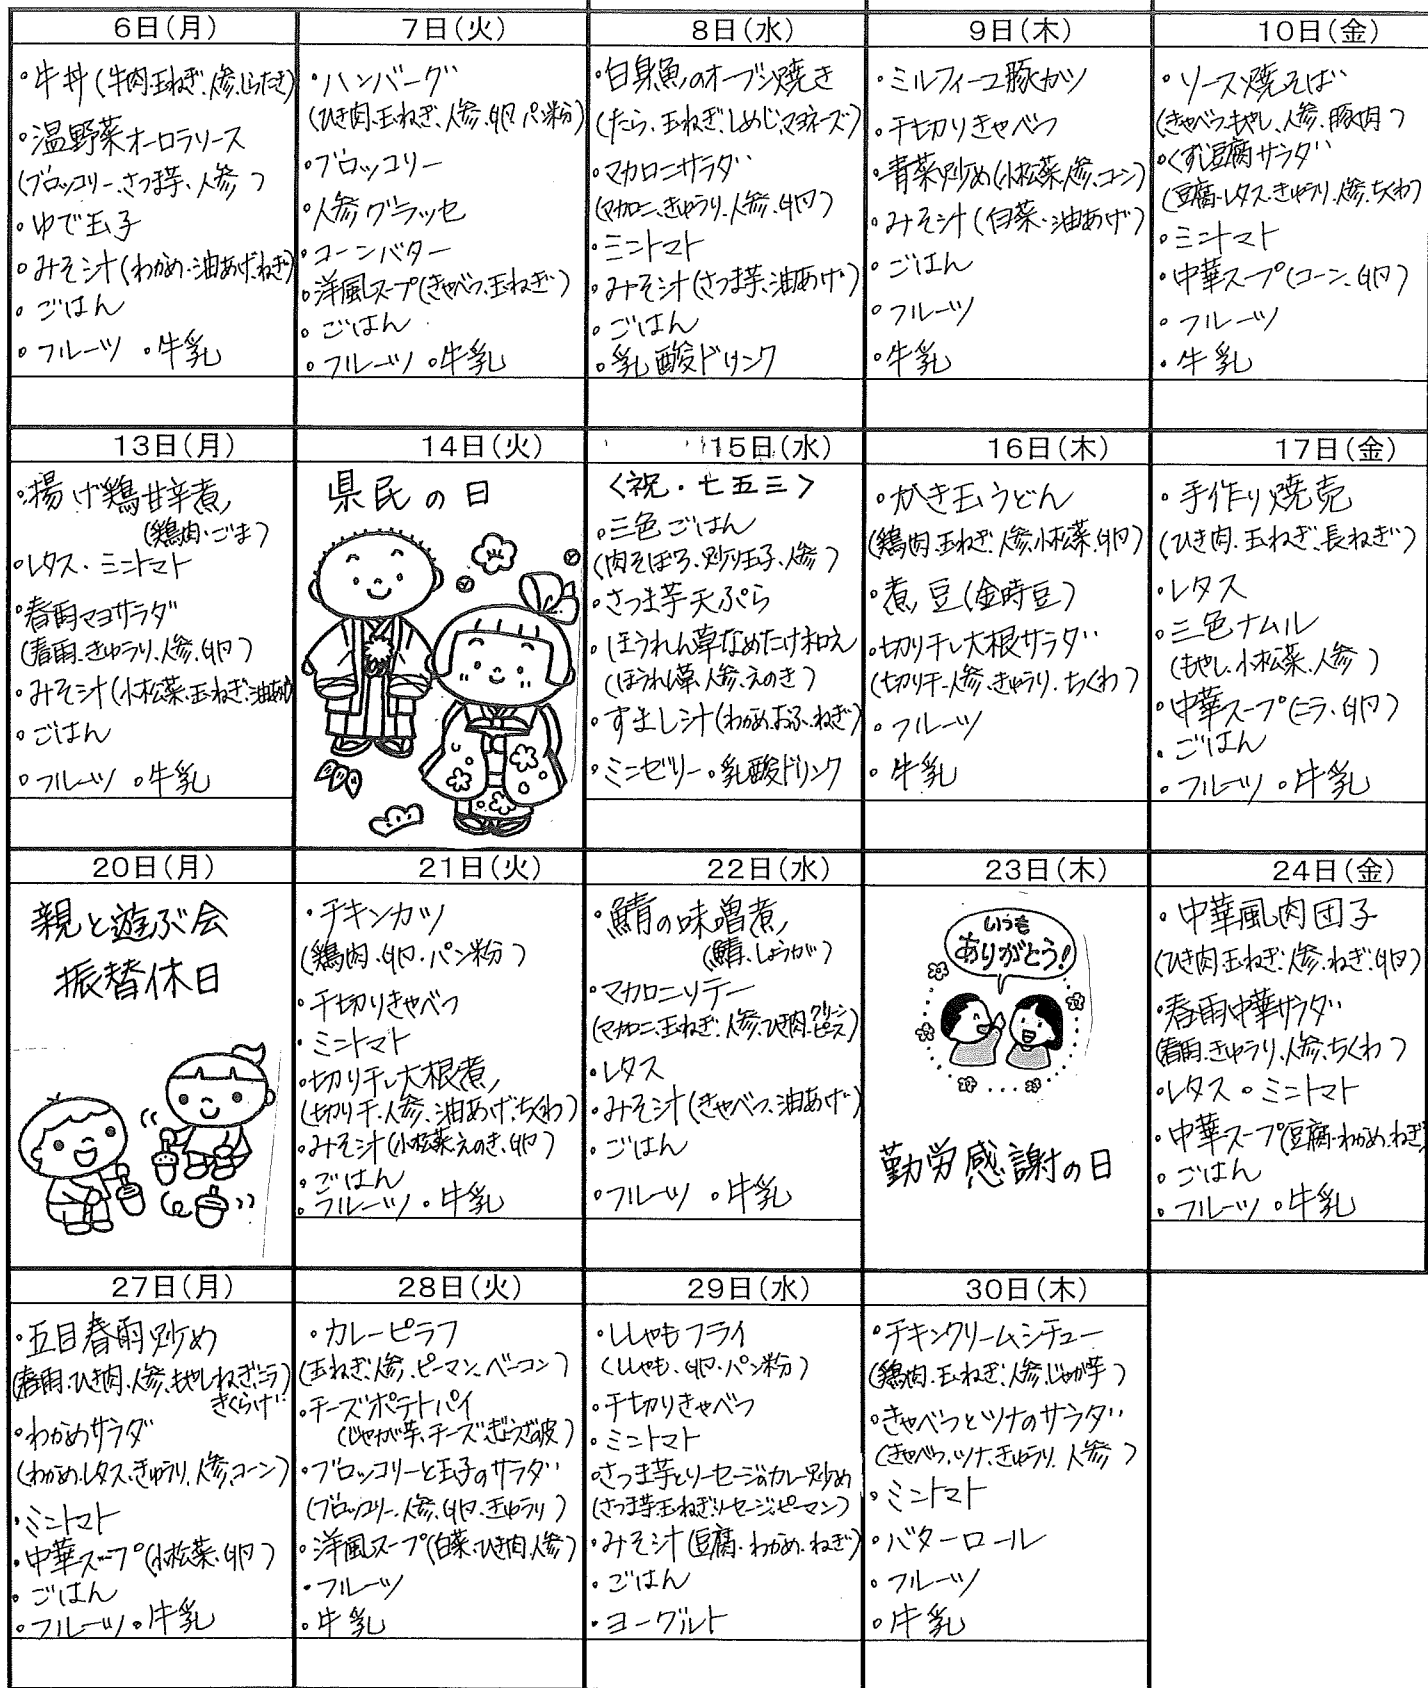 6日(月)
・牛丼(牛肉.玉ねぎ.人参.しらたき)
・温野菜オーロラソース
(ブロッコリー.さつま芋.人参)
・ゆで玉子
・みそ汁(わかめ.油あげ.ねぎ)
・ごはん
・フルーツ ・牛乳
7日(火)
・ハンバーグ
(ひき肉.玉ねぎ.人参.卵.パン粉)
・ブロッコリー
・人参グラッセ
・コーンバター
・洋風スープ(きゃべつ.玉ねぎ)
・ごはん
・フルーツ ・牛乳
8日(水)
・白身魚のオーブン焼き
(たら.玉ねぎ.しめじ.マヨネーズ)
・マカロニサラダ
(マカロニ.きゅうり.人参.卵)
・ミニトマト
・みそ汁(さつま芋.油あげ)
・ごはん
・乳酸ドリンク
9日(木)
・ミルフィーユ豚カツ
・千切りきゃべつ
・青菜炒め(小松菜.人参.コーン)
・みそ汁(白菜.油あげ)
・ごはん
・フルーツ
・牛乳
10日(金)
・ソース焼そば
(きゃべつ.もやし.人参.豚肉)
・くずし豆腐サラダ
(豆腐.レタス.きゅうり.人参.ちくわ)
・ミニトマト
・中華スープ(コーン.卵)
・フルーツ
・牛乳
13日(月)
・揚げ鶏甘辛煮
(鶏肉.ごま)
・レタス.ミニトマト
・春雨マヨサラダ
(春雨.きゅうり.人参.卵)
・みそ汁(小松菜.玉ねぎ.油あげ)
・ごはん
・フルーツ ・牛乳
14日(火)
県民の日
15日(水)
〈祝・七五三〉
・三色ごはん
(肉そぼろ.炒り玉子.人参)
・さつま芋天ぷら
・ほうれん草なめたけ和え
(ほうれん草.人参.えのき)
・すまし汁(わかめ.おふ.ねぎ)
・ミニゼリー ・乳酸ドリンク
16日(木)
・かき玉うどん
(鶏肉.玉ねぎ.人参.小松菜.卵)
・煮豆(金時豆)
・切り干し大根サラダ
(切り干.人参.きゅうり.ちくわ)
・フルーツ
・牛乳
17日(金)
・手作り焼売
(ひき肉.玉ねぎ.長ねぎ)
・レタス
・三色ナムル
(もやし.小松菜.人参)
・中華スープ(ニラ.卵)
・ごはん
・フルーツ ・牛乳
20日(月)
親と遊ぶ会
振替休日
21日(火)
・チキンカツ
(鶏肉.卵.パン粉)
・千切りきゃべつ
・ミニトマト
・切り干し大根煮
(切り干.人参.油あげ.ちくわ)
・みそ汁(小松菜.えのき.卵)
・ごはん
・フルーツ ・牛乳
22日(水)
・鯖の味噌煮
(鯖.しょうが)
・マカロニソテー
(マカロニ.玉ねぎ.人参.ひき肉.グリーンピース)
・レタス
・みそ汁(きゃべつ.油あげ)
・ごはん
・フルーツ ・牛乳
23日(木)
いつも
ありがとう!
勤労感謝の日
24日(金)
・中華風肉団子
(ひき肉.玉ねぎ.人参.ねぎ.卵)
・春雨中華サラダ
(春雨.きゅうり.人参.ちくわ)
・レタス ・ミニトマト
・中華スープ(豆腐.わかめ.ねぎ)
・ごはん
・フルーツ ・牛乳
27日(月)
・五目春雨炒め
(春雨.ひき肉.人参.もやし.ねぎ.ニラ
きくらげ)
・わかめサラダ
(わかめ.レタス.きゅうり.人参.コーン)
・ミニトマト
・中華スープ(小松菜.卵)
・ごはん
・フルーツ ・牛乳
28日(火)
・カレーピラフ
(玉ねぎ.人参.ピーマン.ベーコン)
・チーズポテトパイ
(じゃが芋.チーズ.ぎょうざの皮)
・ブロッコリーと玉子のサラダ
(ブロッコリー.人参.卵.きゅうり)
・洋風スープ(白菜.ひき肉.人参)
・フルーツ
・牛乳
29日(水)
・ししゃもフライ
(ししゃも.卵.パン粉)
・千切りきゃべつ
・ミニトマト
・さつま芋とソーセージのカレー炒め
(さつま芋.玉ねぎ.ソーセージ.ピーマン)
・みそ汁(豆腐.わかめ.ねぎ)
・ごはん
・ヨーグルト
30日(木)
・チキンクリームシチュー
(鶏肉.玉ねぎ.人参.じゃが芋)
・きゃべつとツナのサラダ
(きゃべつ.ツナ.きゅうり.人参)
・ミニトマト
・バターロール
・フルーツ
・牛乳